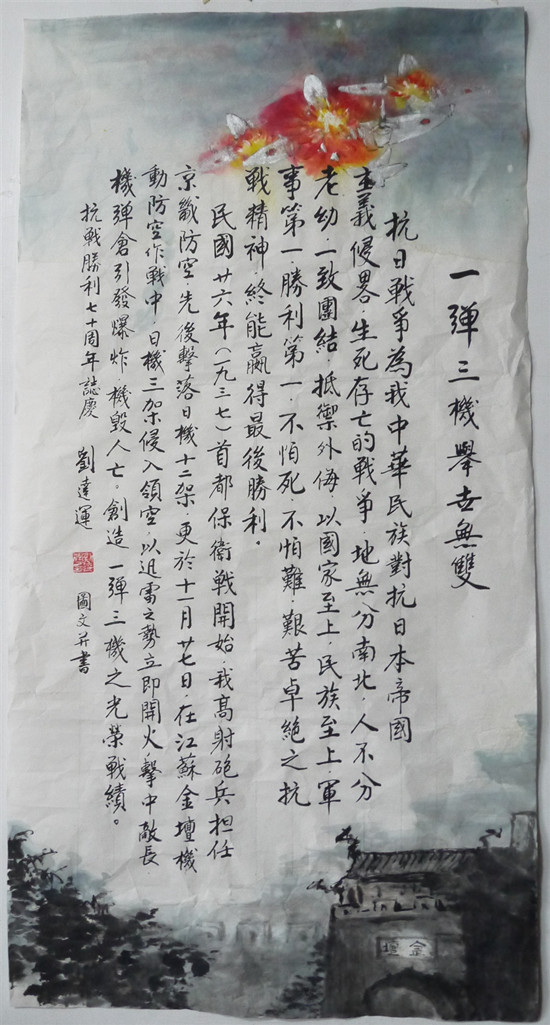 一彈三機舉世無雙
抗日戰爭為我中華民族對抗日本帝國
主義侵畧，生死存亡的戰爭，地無分南北，人不分
老幼，一致團結，抵禦外侮，以國家至上，民族至上，軍
事第一，勝利第一，不怕死，不怕難，艱苦卓絕之抗
戰精神，終能贏得最後勝利。
民國廿六年（一九三七）首都保衛戰開始，我高射砲兵担任
京畿防空，先後擊落日機十二架，更於十一月廿七日，在江蘇金壇機
動防空作戰中，日機三架侵入領空，以迅雷之勢立即開火，擊中敵長
機彈倉引發爆炸，機毀人亡，創造一彈三機之光榮戰績。
抗戰勝利七十周年誌慶 劉達運 圖文并書
金壇